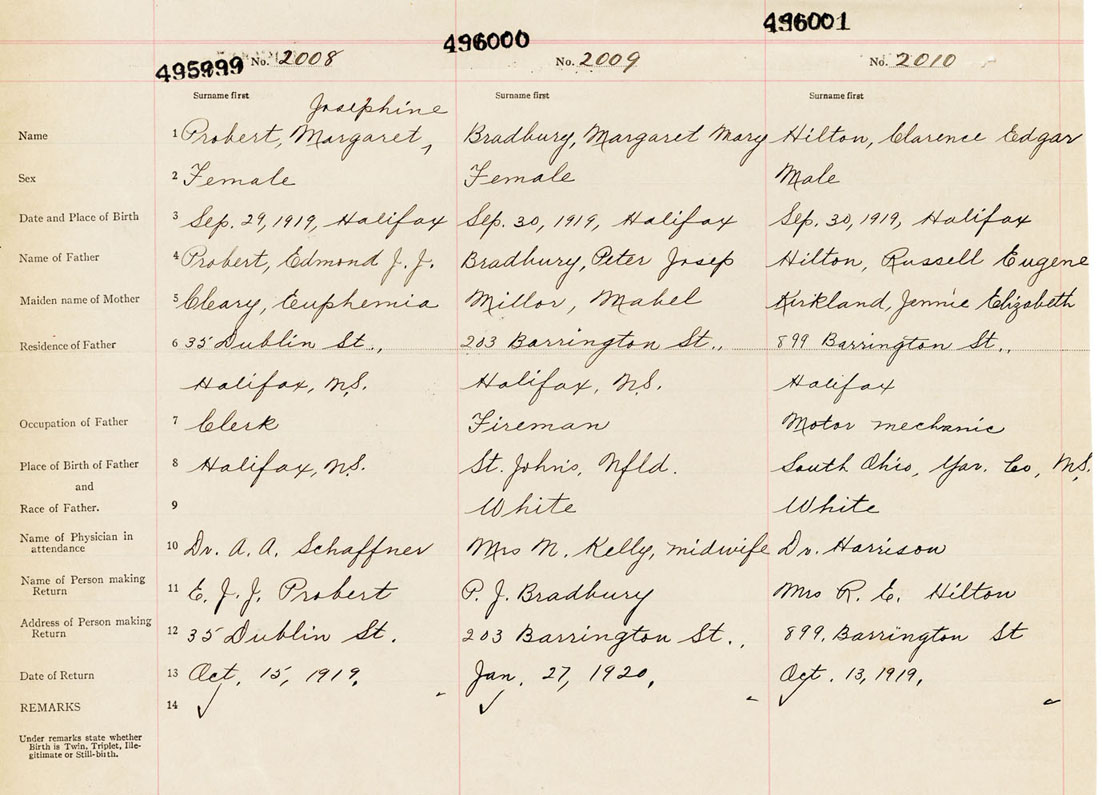 495999 496000 496001
No. 2008 No. 2009 No. 2010
Surname first Surname first Surname first
Josephine
Name 1 Probert, Margaret, Bradbury, Margaret Mary Hilton, Clarence Edgar
Sex 2 Female Female Male
Date and Place of Birth 3 Sep. 29, 1919, Halifax Sep. 30, 1919, Halifax Sep. 30, 1919, Halifax
Name of Father 4 Probert, Edmond J. J. Bradbury, Peter Josep Hilton, Russell Eugene
Maiden name of Mother 5 Cleary, Euphemia Millor, Mabel Kirkland, Jennie Elizabeth
Residence of Father 6 35 Dublin St., 203 Barrington St., 899 Barrington St.,
Halifax, N.S. Halifax, N.S. Halifax
Occupation of Father 7 Clerk Fireman Motor mechanic
Place of Birth of Father 8 Halifax, N.S. St. John's, Nfld. South Ohio, Yar. Co, N.S.
and
Race of Father. 9 White White
Name of Physician in
attendance 10 Dr. A. A. Schaffner Mrs N. Kelly, midwife Dr. Harrison
Name of Person making
Return 11 E. J. J. Probert P. J. Bradbury Mrs R. E. Hilton
Address of Person making
Return 12 35 Dublin St. 203 Barrington St., 899, Barrington St
Date of Return 13 Oct, 15, 1919, Jan, 27, 1920, Oct. 13, 1919,
REMARKS 14
Under remarks state whether
Birth is Twin, Triplet, Ille-
gitimate or Still-birth.